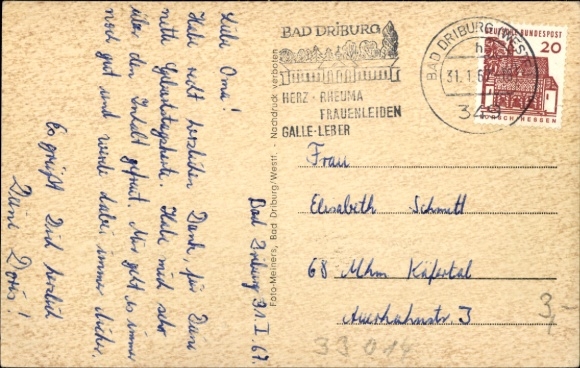 Bad Driburg 31. I. 67.
Liebe Oma!
Habe recht herzlichen Dank, für Deine
nette Geburtstagskarte. Habe mich sehr
über den Inhalt gefreut. Mir geht es immer
noch gut und werde dabei immer dicker.
Es grüßt Dich herzlich
Deine Doris!
Foto-Meiners, Bad Driburg/Westf. - Nachdruck verboten
BAD DRIBURG
HERZ · RHEUMA
FRAUENLEIDEN
GALLE · LEBER
BAD DRIBURG (WESTF)
h
31.1.67
349
DEUTSCHE BUNDESPOST
20
LORSCH/HESSEN
Frau
Elisabeth Schmitt
68 Mhm Käfertal
Auerhahnstr. 3
3,-
33 014